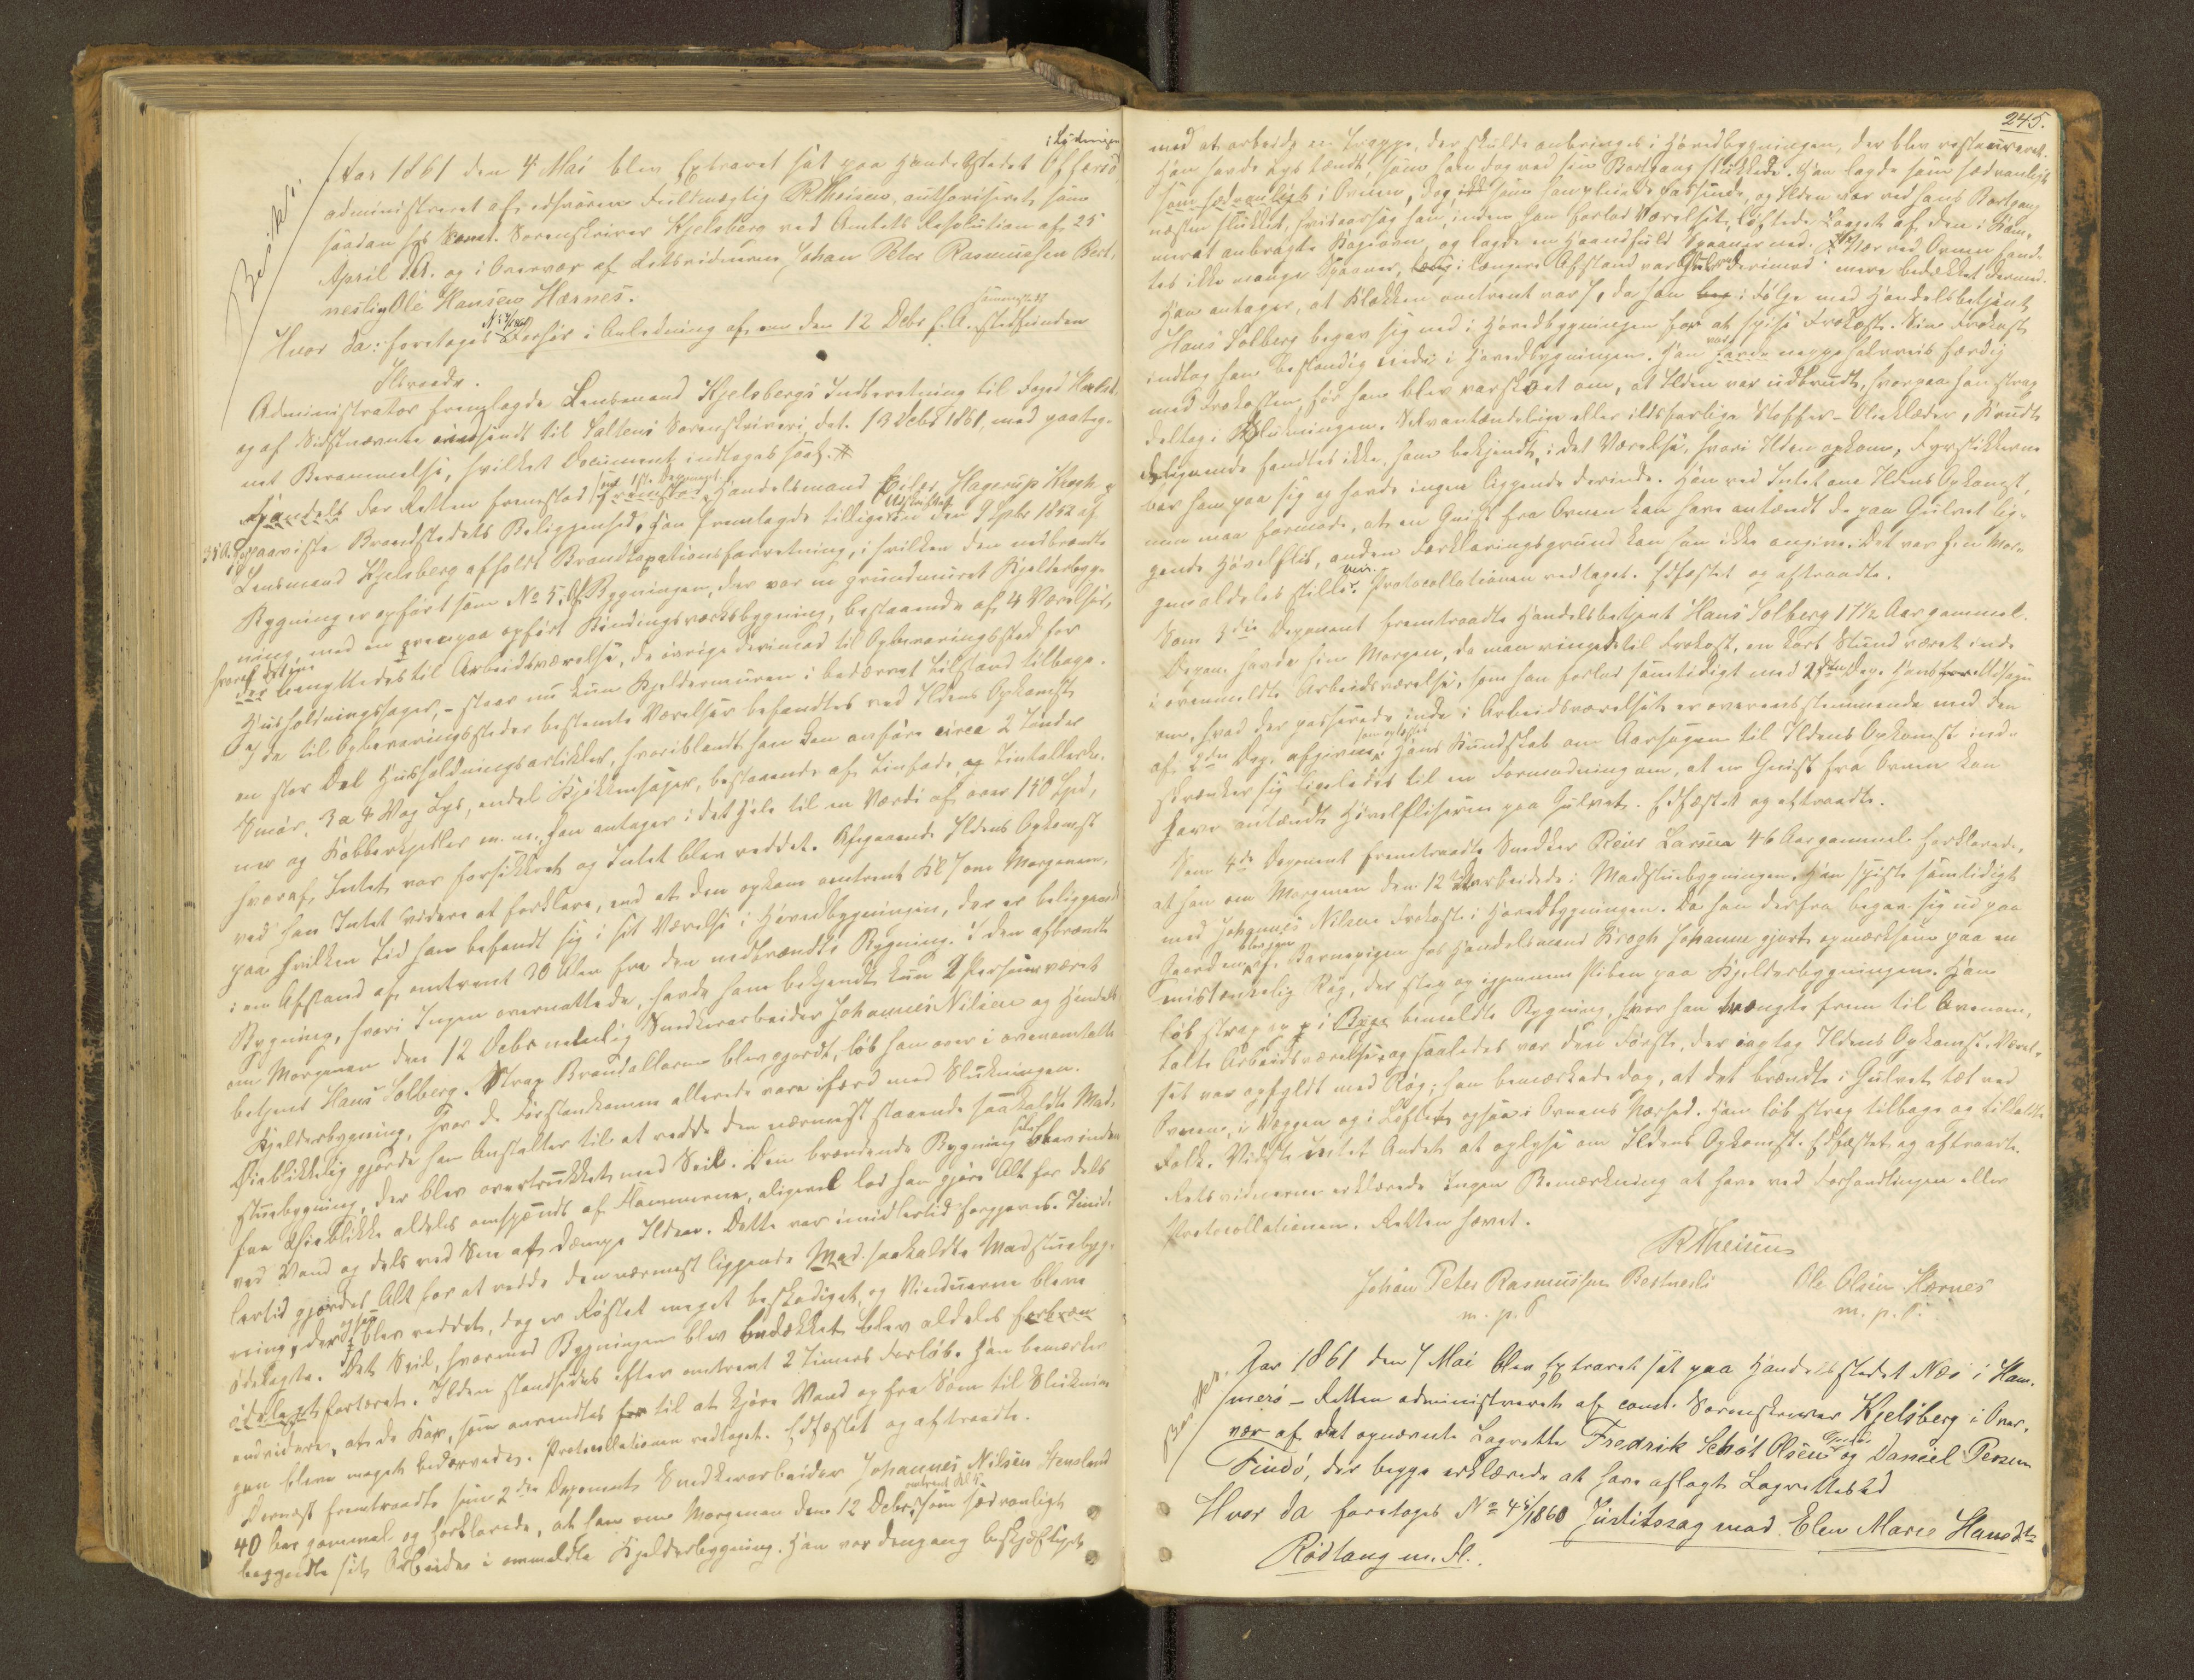 i Lödingen
Beskikket.
Aar 1861 den 4 Mai blev Extraret sat paa Handelstedet Offersö,
administreret af edsvoren Fuldmægtig R. Theisen, authoriseret som
saadan hos const. Sorenskriver Kjelsberg ved Amtets Resolution af 25
April d.A. og i Overvær af Retsvidnerne Johan Peter Rasmussen Best-
nesli og Ole Hansen Hærnes.
Hvor da: foretoges Forhör i Anledning af en den 12 Debr f. A. stedfunden
Ildsvaade.
Administrator fremlagde Lensmand Kjelsbergs Indberetning til Foged
og af Sidstnævnte indsendt til Saltens Sorenskriveri dat. 13 Febr 1861 med paateg-
net Berammelse, hvilket Document indtages saal.
For Retten fremstod som 1ste Deponent Handelsmand Eiler Hagerup Krogh
paaviste Brandstedets Beliggenhed, han fremlagde tilligemed den 9 Septbr 1852 af
Lensmand Kjelsberg afholdt Brandtaxationsforretning, i hvilken den nedbrændte
Bygning er opfört som No 5. Bygningen, der var en grundmuret Kjelderbyg-
ning, med en ovenpaa opfört Bindingsværksbygning, bestaaende af 4 Værelser,
hvoraf det ene benyttedes til Arbeidsværelse, de övrige derimod til Opbevaringssted for
Husholdningssager, - staar nu kun Kjeldermuren i bedærvet Tilstand tilbage.
I de til Opbevaringssteder bestemte Værelser befandtes ved Ildens Opkomst
en stor Del Husholdningsartikler, hvoriblandt han kan anföre circa 2 Tönder
Smör, 3 a 4 Vog Lys, endel Kjökkensager, bestaaende af Tinfade og Tintallerke-
ner og Kobberkjedler m. m., han antager i det Hele til en Værdi af over 150 Spd,
hvoraf Intet var forsikkret og Intet blev reddet. Angaaende Ildens Opkomst
ved han Intet videre at forklare, end at den opkom omtrent Kl 7 om Morgenen,
paa hvilken Tid han befandt sig i sit Værelse i Hovedbygningen, der er beliggende
i en Afstand af omtrent 30 Alen fra den nedbrændte Bygning. I den afbrændte
Bygning, hvori Ingen overnattede, havde ham bekjendt kun 2 Personer været
om Morgenen den 12 Debr nemlig Snedkerarbeider Johannes Nilsen og Handels-
betjent Hans Solberg. Strax Brandallarm blev gjordt, löb han over i ovennævnte
Kjelderbygning, hvor de Förstankomne allerede vare ifærd med Slukningen.
Öieblikkelig gjorde han Anstalter til at redde den nærmest staaende saakaldte Mad-
stuebygning, der blev overtrukket med Seil. Den brændende Bygning blev inden
faa Öieblikke aldeles omspændt af Flammerne, aligevel lod han gjöre Alt for dels
ved Vand og dels ved Sne at dæmpe Ilden. Dette var imidlertid forgjæves. Imid-
lertid gjordes Alt for at redde den nærmest liggende saakaldte Madstuebyg-
ning, der blev reddet, dog er Röstet meget beskadiget og Vinduerne bleve
ödelagte. Det Seil, hvormed Bygningen blev bedækket blev aldeles
fortæret. Ilden standsedes efter omtrent 2 Timers Forlöb. Han bemærker
endvidere, at de Kar, som anvendtes til at kjöre Vand op fra Söen til Sluknin-
gen bleve meget bedærvede. Protocollationen vedtaget. Edfæstet og aftraadte.
Dernest fremtraadte som 2den Deponent Snedkerarbeider Johannes Nilsen
40 Aar gammel og forklarede, at han om Morgenen den 12 Debr som sædvanligt
omtrent Kl 5
begyndte sit Arbeide i ommeldte Kjelderbygning. Han var dengang beskjæftiget
245.
med at arbeide en Trappe, der skulde anbringes i Hovedbygningen, der blev restaureret.
Han havde Lys tændt, som han dog ved sin Bortgang slukkede. Han lagde som sædvanligt
i Ovnen, dog som han pleiede passende, og Ilden var ved hans Bortgang
næsten slukket, hvilket saa han, inden han forlod Værelset,
ved Ovnen fand-
tes ikke mange Spaaner, længere Afstand var Gulvet derimod mere bedækket dermed.
Han antager, at Klokken omtrent var 7, da han i Fölge med Handelsbetjent
Hans Solberg begav sig ned i Hovedbygningen for at spise Frokost. Sin Frokost
indtog han bestandig inde i Hovedbygningen. Han var neppe halvveis færdig
med Frokosten för han blev varskoet om, at Ilden var udbrudt, hvorpaa han strax
deltog i Slukningen. Selvantændelige eller ildsfarlige Stoffer - Olieklæder, Krudt
deslignende fandtes ikke, ham bekjendt, i det Værelse, hvori Ilden opkom, Fyrstikkerne
bar han paa sig og havde ingen liggende derinde. Han ved Intet om Ildens Opkomst,
men maa formode, at en Gnist fra Ovnen kan have antændt de paa Gulvet lig-
gende Hövelflis, anden Forklaringsgrund kan han ikke angive. Det var hin Mor-
gen aldeles stille Veir. Protocollationen vedtaget. Edfæstet og aftraadte.
Som 3die Deponent fremtraadte Handelsbetjent Hans Solberg 17½ Aar gammel.
Depon. havde hin Morgen, da man ringede til Frokost, en kort Stund været inde
i ovenmeldte Arbeidsværelse, som han forlod samtidigt med 2den Dep. Hans Udsagn
om, hvad der passerede inde i Arbeidsværelset er overensstemmende med den
af 2den Dep. afgivne, Hans Kundskab om Aarsagen til Ildens Opkomst ind-
skrænker sig ligeledes til en Formodning om, at en Gnist fra Ovnen kan
have antændt Hövelfliserne paa Gulvet. Edfæstet og aftraadte.
Som 4de Deponent fremtraadte Snedker Peder Larsen 46 Aar gammel forklarede,
at han om Morgenen den 12te arbeidede i Madstuebygningen. Han spiste samtidigt
med Johannes Nilsen Frokost i Hovedbygningen. Da han derfra begav sig ud paa
Gaarden, blev han af Barnepigen hos Handelsmand Krogh Johanne gjort opmærksom paa en
mistænkelig Rög, der steg op igjennem Piben paa Kjelderbygningen. Han
löb strax op i bemeldte Bygning, hvor han trængte frem til ovenom-
talte Arbeidsværelse, og saaledes var den Förste, der iagtog Ildens Opkomst. Værel-
set var opfyldt med Rög; han bemærkede dog, at det brændte i Gulvet tæt ved
Ovnen, i Væggen og i Loftet, ogsaa i Ovnens Nærhed. Han löb strax tilbage og tilkaldte
Folk. Vidste Intet Andet at oplyse om Ildens Opkomst. Edfæstet og aftraadte.
Retsvidnerne erklærede ingen Bemærkning at have ved Forhandlingen eller
Protocollationen. Retten hævet.
R Theisen
Johan Peter Rasmussen Bestnesli
m. p. P
Ole Olsen Hærnes
m. p. P.
Beskikket.
Aar 1861 den 7 Mai blev Extraret sat paa Handelsstedet Næs i Ham-
merö - Retten administreret af const. Sorenskriver Kjelsberg i Over-
vær af det opnævnte Lagrette Fredrik Schöt Olsen og Daniel Persen
Findö, der begge erklærede at have aflagt Lagrettesed
Hvor da foretoges No 45/1860 Justitssag mod Elen Marie Hansdtr
Rödtang m. fl.